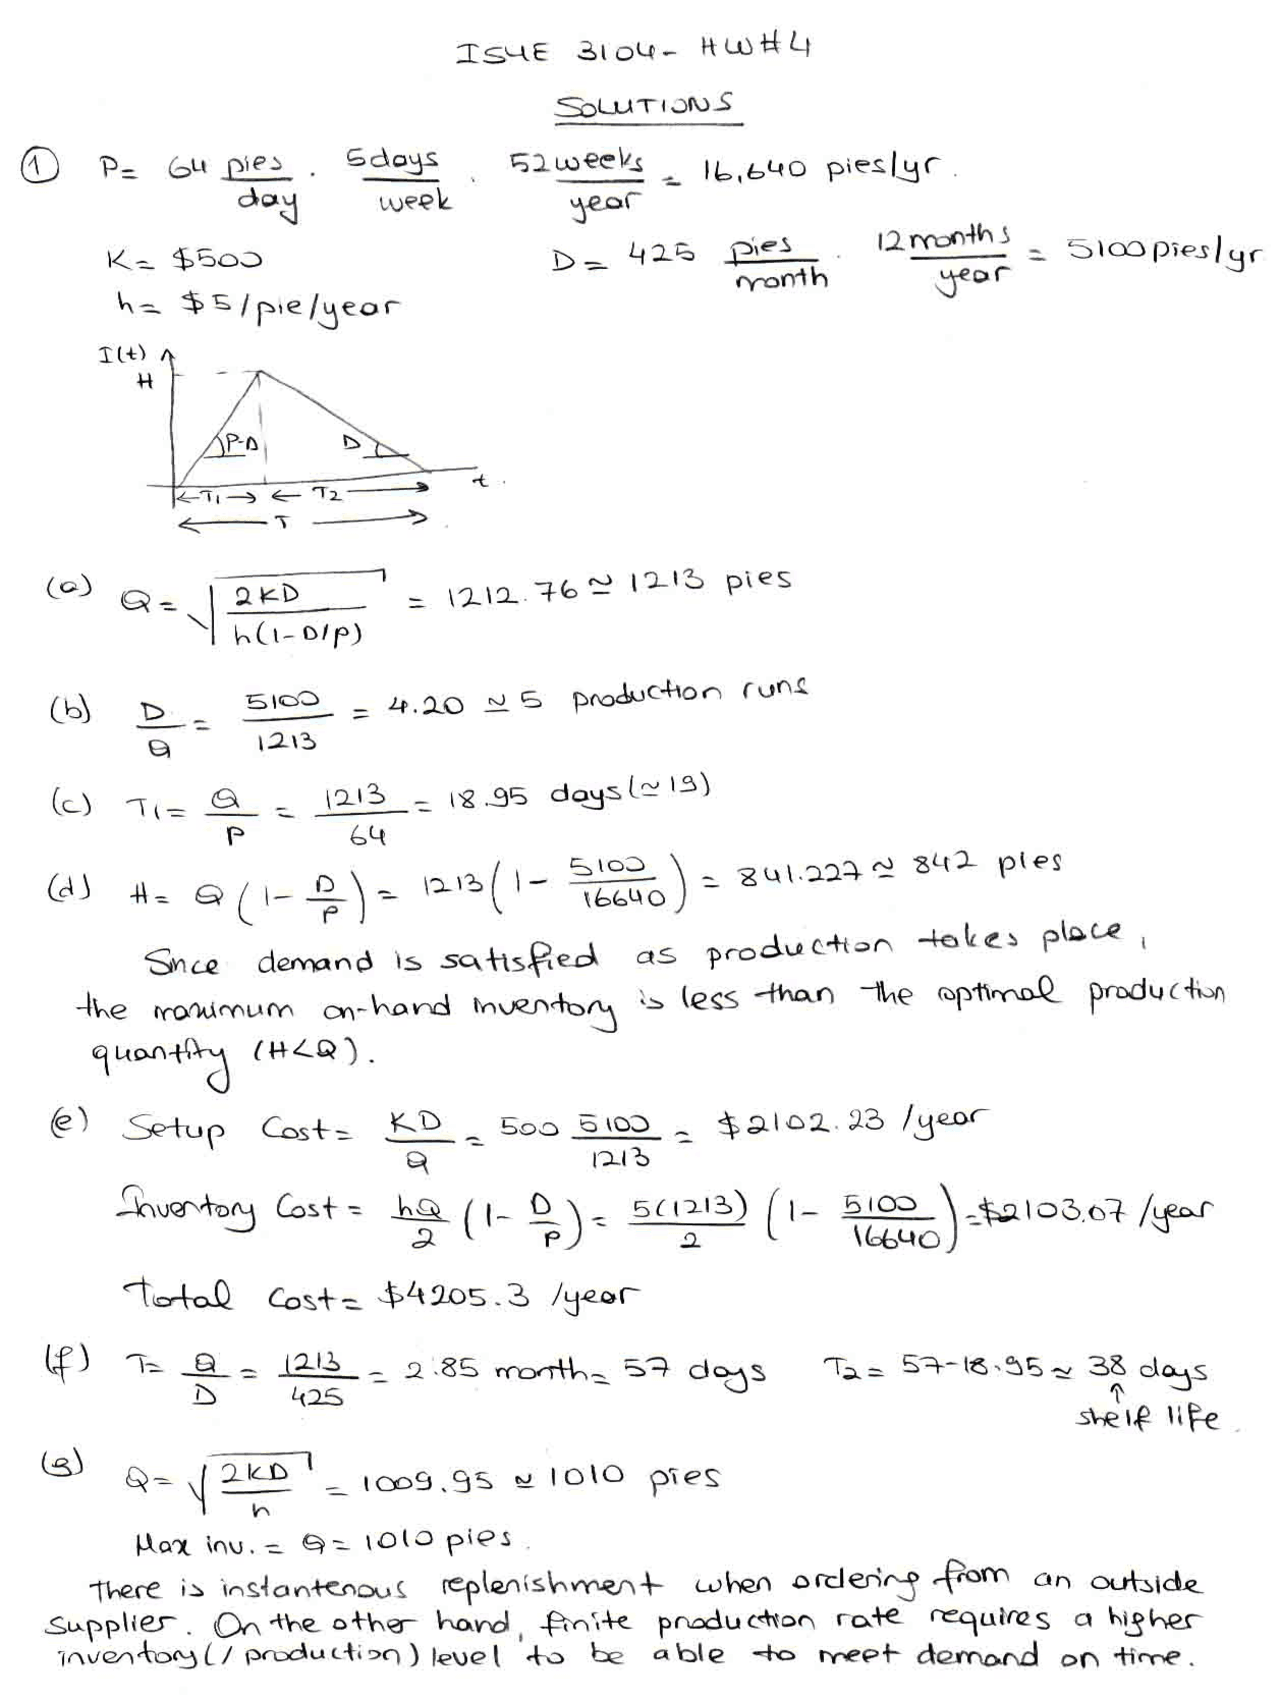 ISYE 3104- HW#4
SOLUTIONS
① P= 64 pies/day . 5days/week . 52weeks/year = 16,640 pies/yr.
K= $500 D= 425 pies/month . 12months/year = 5100pies/yr
h= $5/pie/year
I(t)
H
P-D D
T1 T2 t
T
(a) Q= √(2KD / h(1-D/P)) = 1212.76 ≃ 1213 pies
(b) D/Q = 5100/1213 = 4.20 ≃ 5 production runs
(c) T1= Q/P = 1213/64 = 18.95 days(≃19)
(d) H= Q(1- D/P)= 1213(1- 5100/16640) = 841.227 ≃ 842 pies
Since demand is satisfied as production takes place,
the maximum on-hand inventory is less than the optimal production
quantity (H<Q).
(e) Setup Cost= KD/Q = 500 5100/1213 = $2102.23 /year
Inventory Cost= hQ/2 (1- D/P)= 5(1213)/2 (1- 5100/16640)=$2103.07 /year
Total Cost= $4205.3 /year
(f) T= Q/D = 1213/425 = 2.85 month= 57 days T2= 57-18.95 ≃ 38 days
↑
shelf life.
(g) Q= √(2KD/h) = 1009.95 ≃ 1010 pies
Max inv. = Q= 1010 pies.
There is instantenous replenishment when ordering from an outside
supplier. On the other hand, finite production rate requires a higher
inventory(/production) level to be able to meet demand on time.